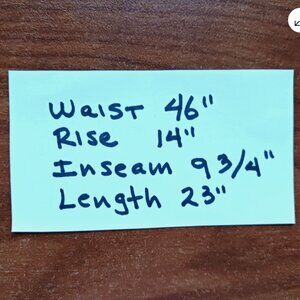 Waist 46"
Rise 14"
Inseam 9 3/4"
Length 23"